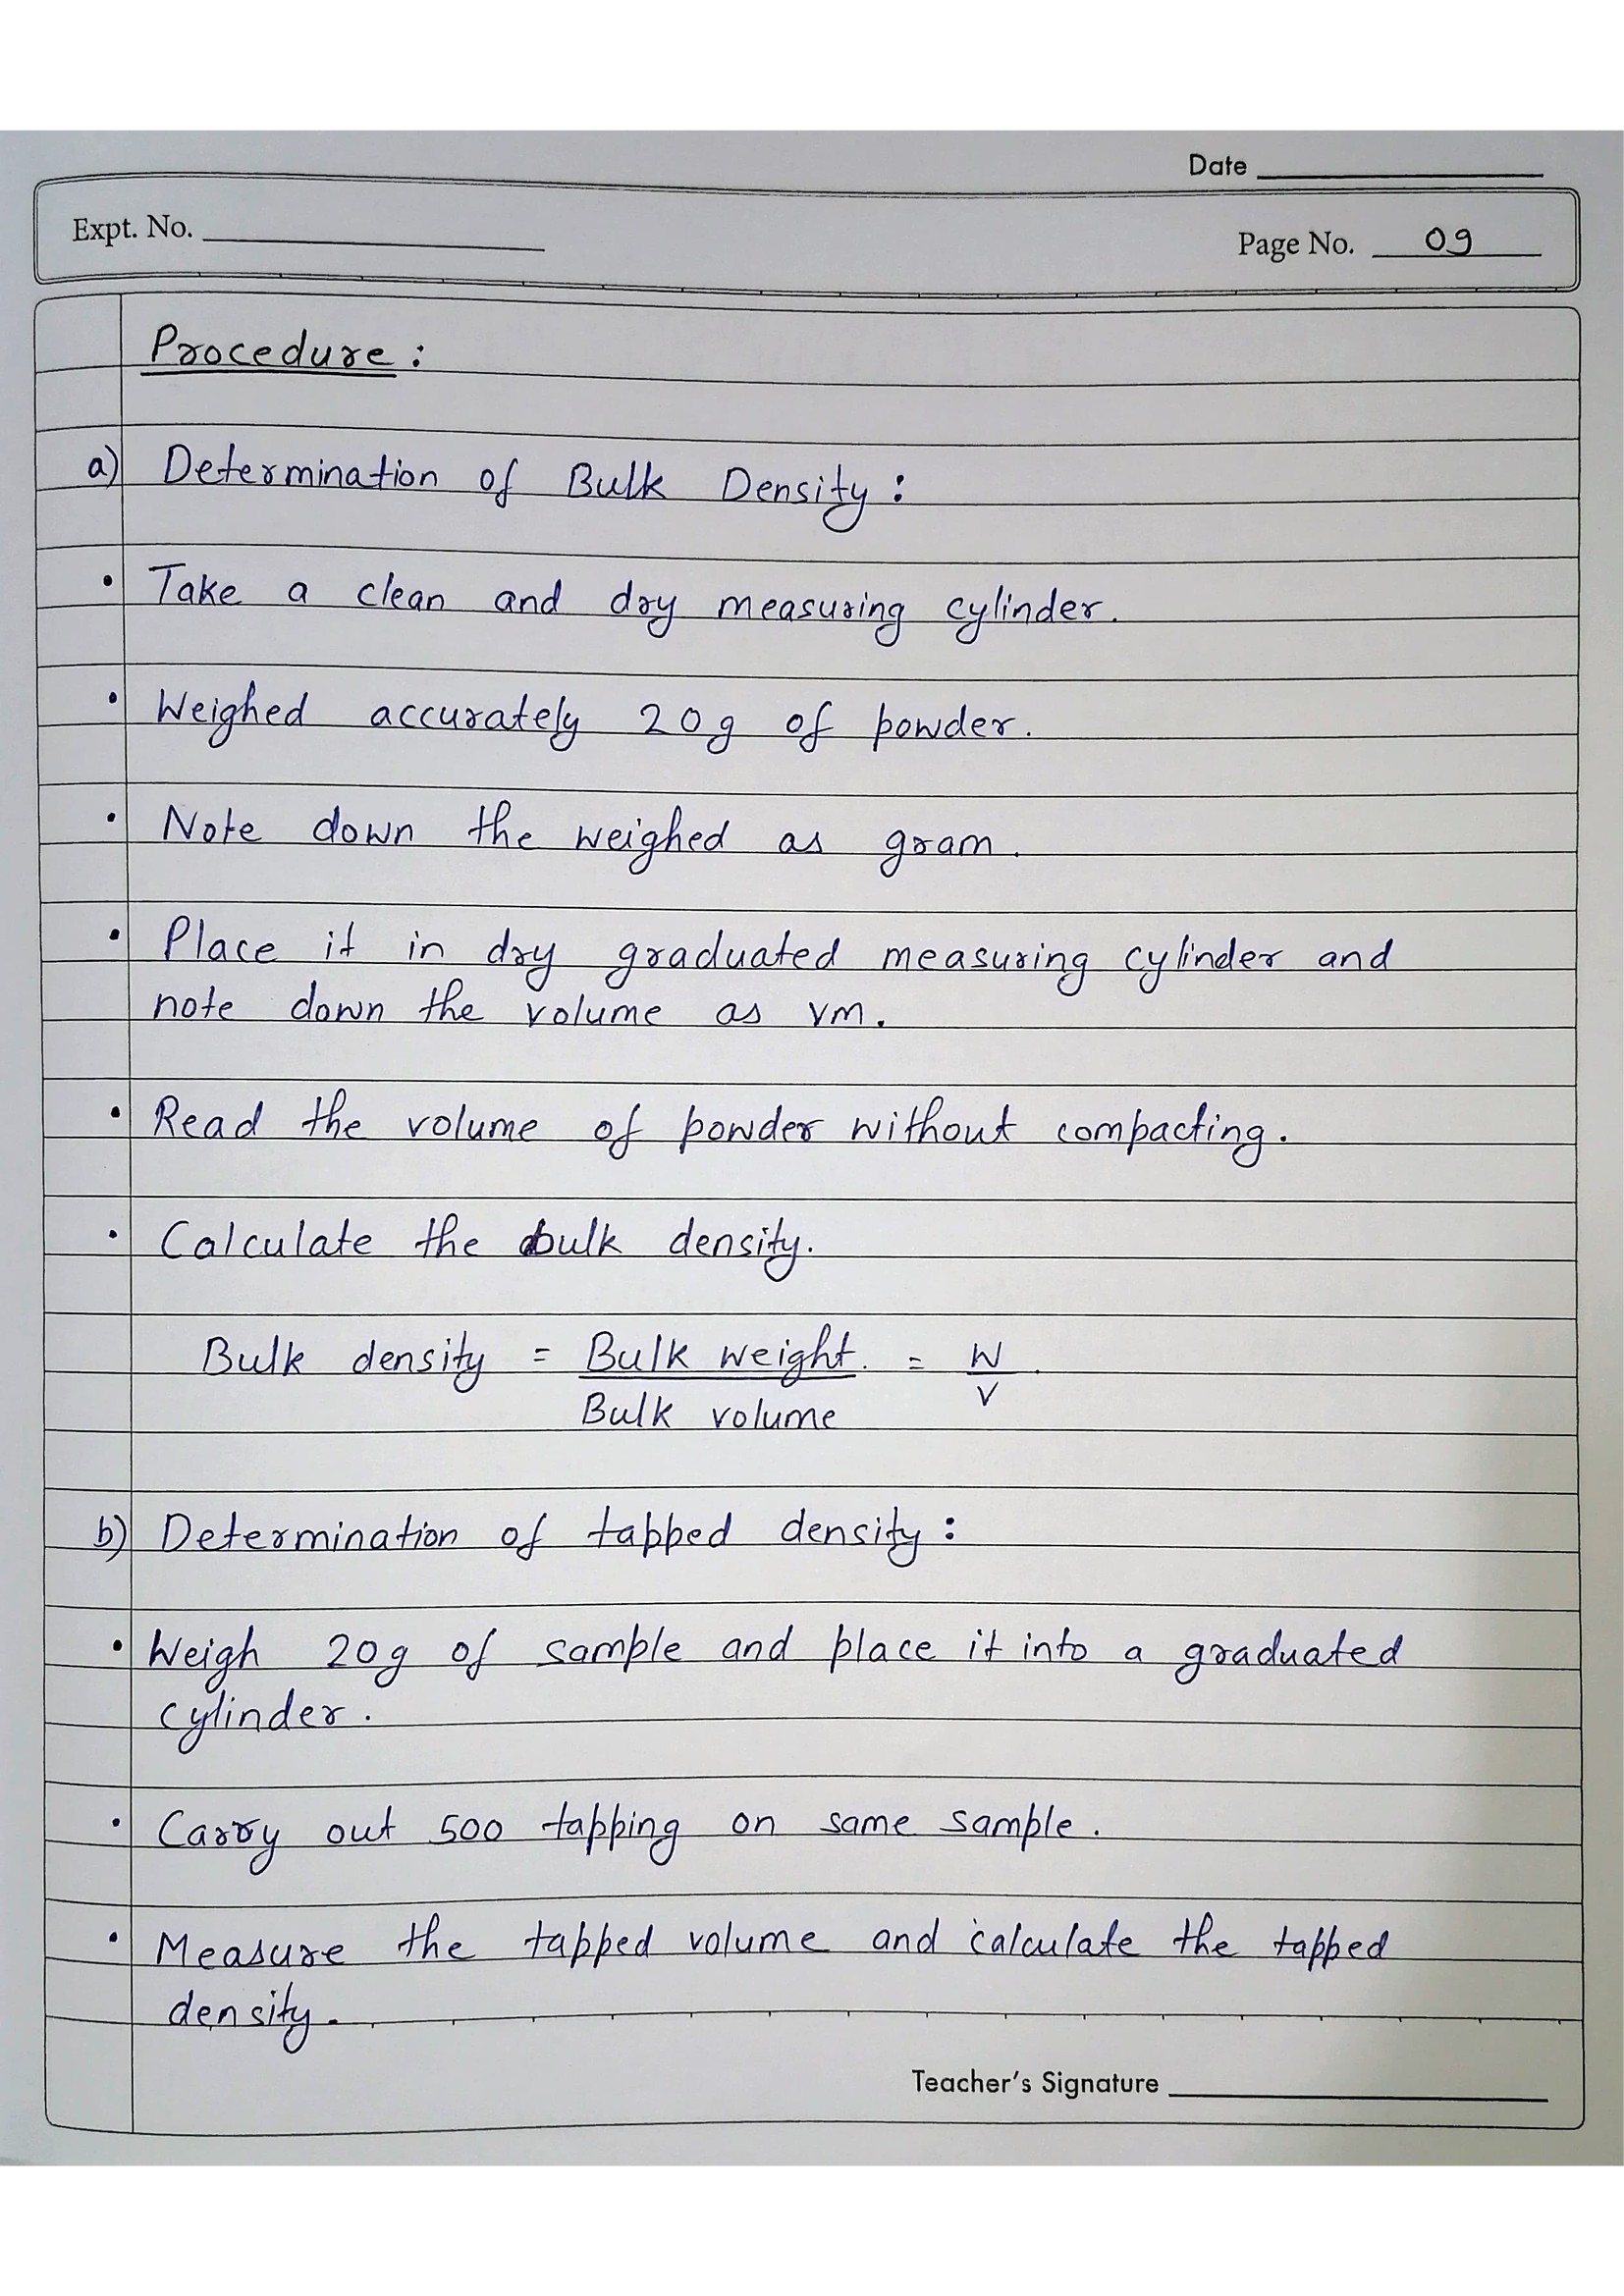 Date
Expt. No.
Page No. 09
Procedure :
a) Determination of Bulk Density :
• Take a clean and dry measuring cylinder.
• Weighed accurately 20g of powder.
• Note down the weighed as gram.
• Place it in dry graduated measuring cylinder and
note down the volume as vm.
• Read the volume of powder without compacting.
• Calculate the bulk density.
Bulk density = Bulk weight. = W
Bulk volume V
b) Determination of tapped density :
• Weigh 20g of sample and place it into a graduated
cylinder.
• Carry out 500 tapping on same sample.
• Measure the tapped volume and calculate the tapped
density.
Teacher's Signature